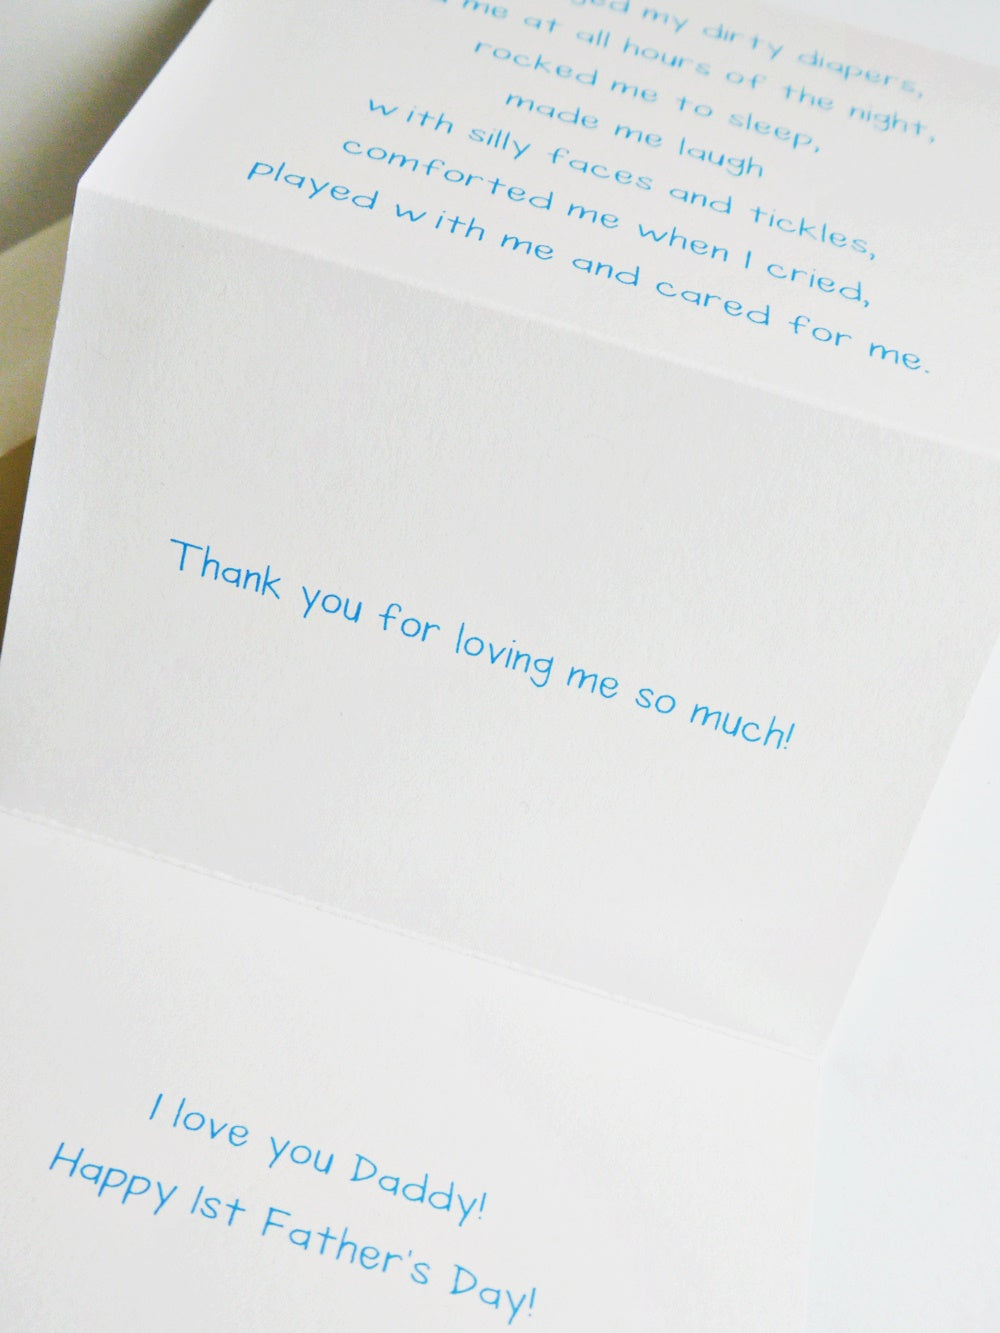 my dirty diapers,
me at all hours of the night,
rocked me to sleep,
made me laugh
with silly faces and tickles,
comforted me when I cried,
played with me and cared for me.
Thank you for loving me so much!
I love you Daddy!
Happy 1st Father's Day!